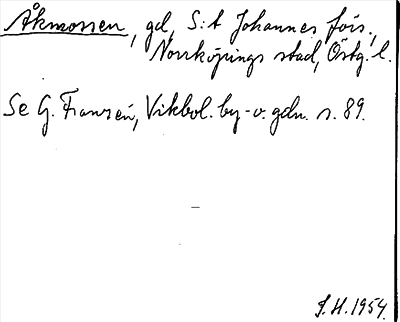 Åkmossen, gd, S:t Johannes förs.,
Norrköpings stad, Östg. l.
Se G. Franzén, Vikbol. by- o. gdn. s. 89.
S.H. 1954.